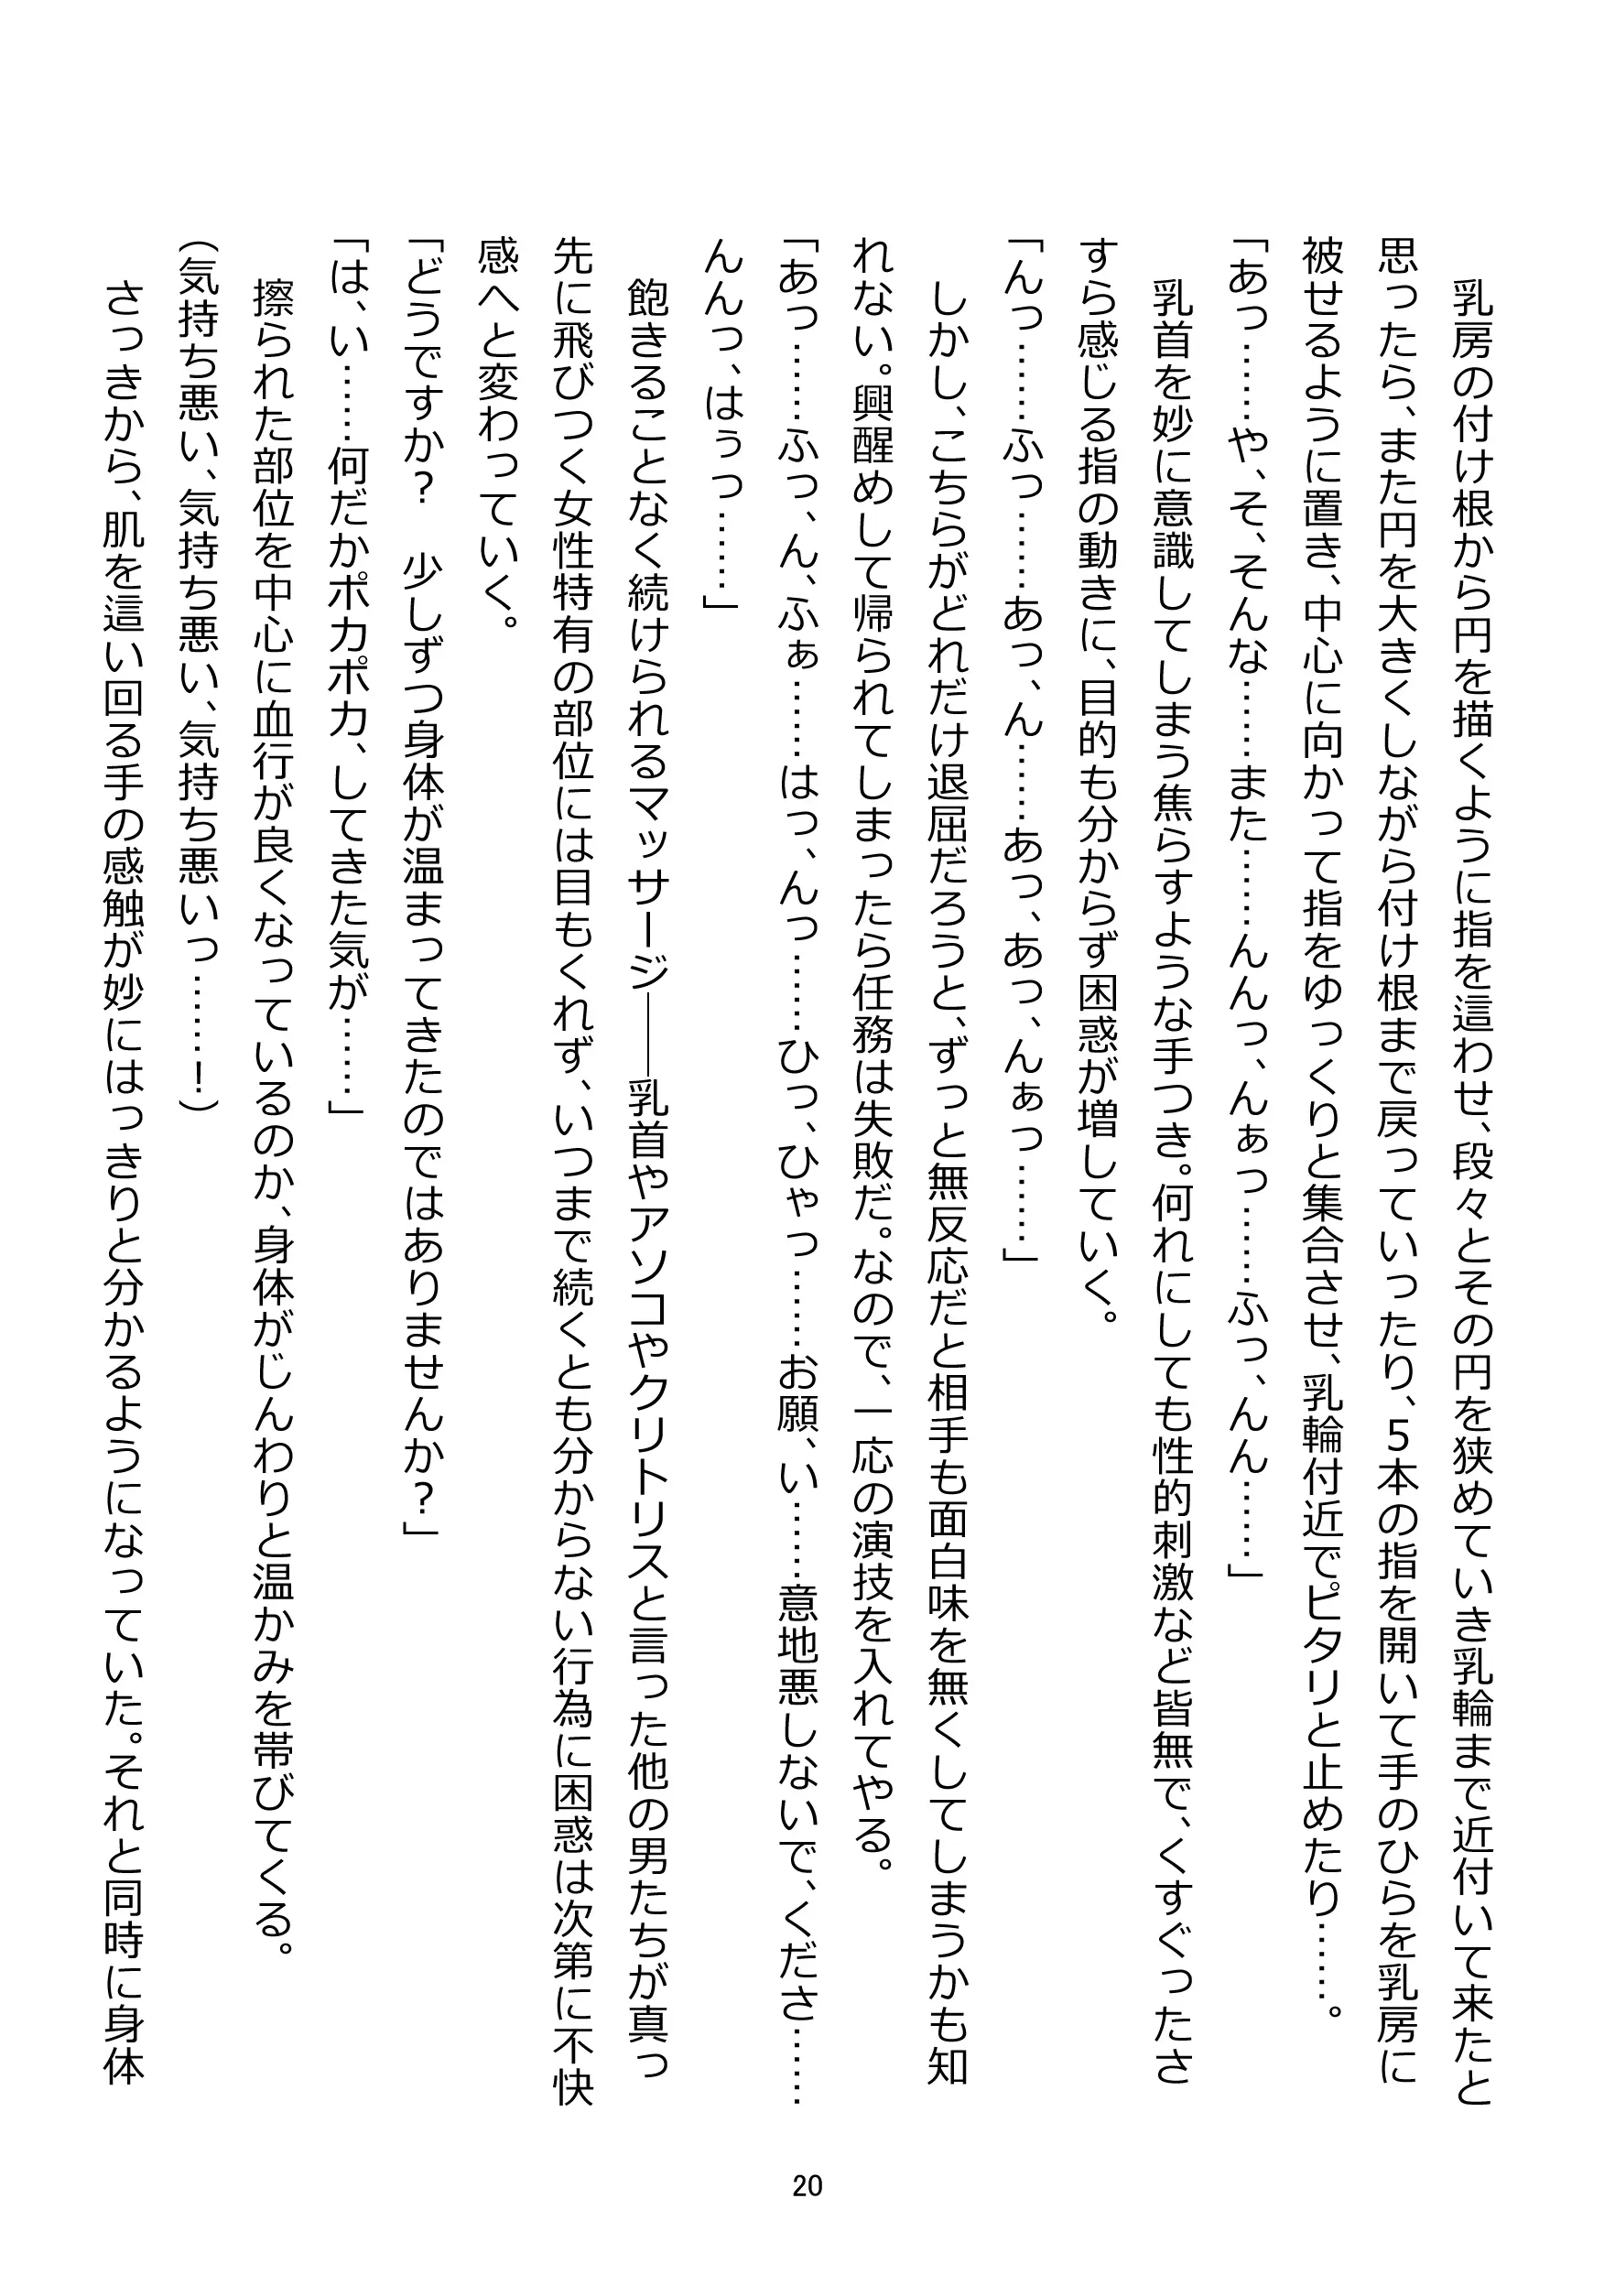 乳房の付け根から円を描くように指を這わせ、段々とその円を狭めていき乳輪まで近付いて来たと
思ったら、また円を大きくしながら付け根まで戻っていったり、5本の指を開いて手のひらを乳房に
被せるように置き、中心に向かって指をゆっくりと集合させ、乳輪付近でピタリと止めたり……。
「あっ……や、そ、そんな……また……んんっ、んぁっ……ふっ、んん……」
　乳首を妙に意識してしまう焦らすような手つき。何れにしても性的刺激など皆無で、くすぐったさ
すら感じる指の動きに、目的も分からず困惑が増していく。
「んっ……ふっ……あっ、ん……あっ、あっ、んぁっ……」
　しかし、こちらがどれだけ退屈だろうと、ずっと無反応だと相手も面白味を無くしてしまうかも知
れない。興醒めして帰られてしまったら任務は失敗だ。なので、一応の演技を入れてやる。
「あっ……ふっ、ん、ふぁ……はっ、んっ……ひっ、ひゃっ……お願、い……意地悪しないで、くださ……
んんっ、はぅっ……」
　飽きることなく続けられるマッサージ――乳首やアソコやクリトリスと言った他の男たちが真っ
先に飛びつく女性特有の部位には目もくれず、いつまで続くとも分からない行為に困惑は次第に不快
感へと変わっていく。
「どうですか?　少しずつ身体が温まってきたのではありませんか?」
「は、い……何だかポカポカ、してきた気が……」
　擦られた部位を中心に血行が良くなっているのか、身体がじんわりと温かみを帯びてくる。
(気持ち悪い、気持ち悪い、気持ち悪いっ……!)
　さっきから、肌を這い回る手の感触が妙にはっきりと分かるようになっていた。それと同時に身体
20